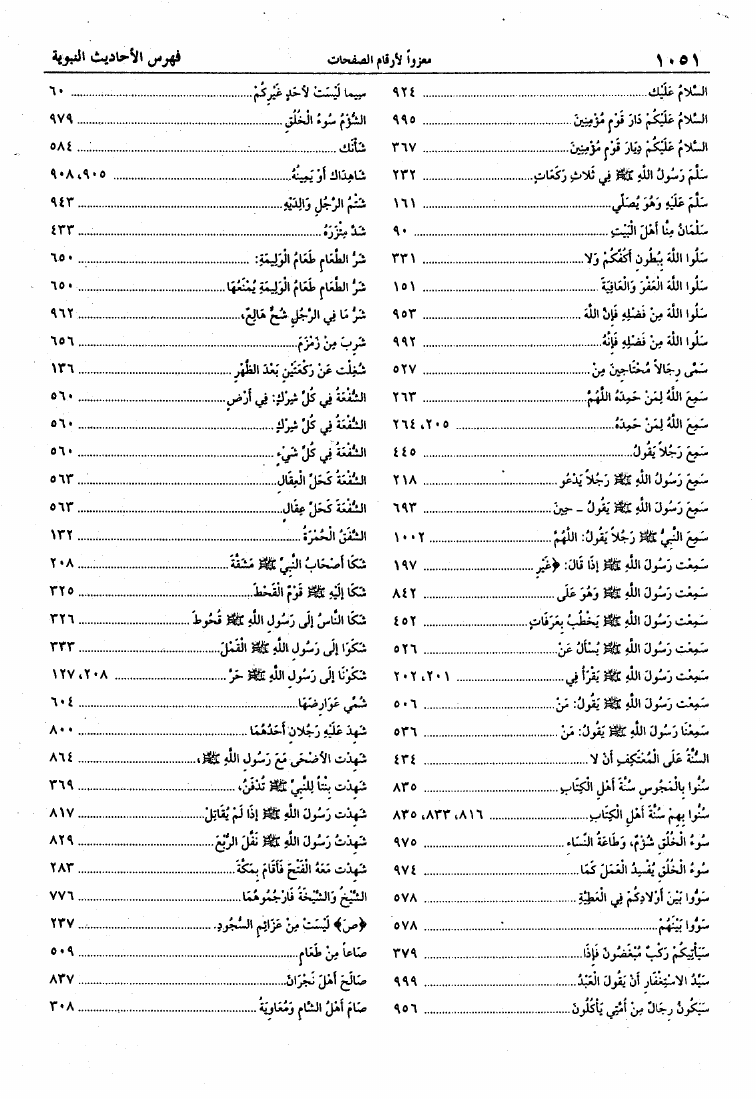 ١٠٥١ معزواً لأرقام الصفحات فهرس الأحاديث النبوية
السَّلَامُ عَلَيْكَ ٩٢٤
السَّلَامُ عَلَيْكُمْ دَارَ قَوْمٍ مُؤْمِنِينَ ٩٩٥
السَّلَامُ عَلَيْكُمْ دِيَارَ قَوْمٍ مُؤْمِنِينَ ٣٦٧
سَلَّمَ رَسُولُ اللهِ ﷺ فِي ثَلَاثِ رَكَعَاتٍ ٢٣٢
سَلَّمَ عَلَيْهِ وَهُوَ يُصَلِّي ١٦١
سَلْمَانُ مِنَّا أَهْلَ الْبَيْتِ ٩٠
سَلُوا اللهَ بِبُطُونِ أَكُفِّكُمْ وَلَا ٣٣١
سَلُوا اللهَ الْعَفْوَ وَالْعَافِيَةَ ١٥١
سَلُوا اللهَ مِنْ فَضْلِهِ فَإِنَّ اللهَ ٩٥٣
سَلُوا اللهَ مِنْ فَضْلِهِ فَإِنَّهُ ٩٩٢
سَمَّى رِجَالاً مُحْتَاجِينَ مِنْ ٥٢٧
سَمِعَ اللهُ لِمَنْ حَمِدَهُ اللَّهُمَّ ٢٦٣
سَمِعَ اللهُ لِمَنْ حَمِدَهُ ٢٠٥، ٢٦٤
سَمِعَ رَجُلاً يَقُولُ ٤٤٥
سَمِعَ رَسُولُ اللهِ ﷺ رَجُلاً يَدْعُو ٢١٨
سَمِعَ رَسُولَ اللهِ ﷺ يَقُولُ - حِينَ ٦٩٣
سَمِعَ النَّبِيُّ ﷺ رَجُلاً يَقُولُ: اللَّهُمَّ ١٠٠٢
سَمِعْت رَسُولَ اللهِ ﷺ إِذَا قَالَ: ﴿غَيْرِ ١٩٧
سَمِعْت رَسُولَ اللهِ ﷺ وَهُوَ عَلَى ٨٤٢
سَمِعْت رَسُولَ اللهِ ﷺ يَخْطُبُ بِعَرَفَاتٍ ٤٥٢
سَمِعْت رَسُولَ اللهِ ﷺ يُسْأَلُ عَنْ ٥٢٦
سَمِعْت رَسُولَ اللهِ ﷺ يَقْرَأُ فِي ٢٠١، ٢٠٢
سَمِعْت رَسُولَ اللهِ ﷺ يَقُولُ: مَنْ ٥٠٦
سَمِعْنَا رَسُولَ اللهِ ﷺ يَقُولُ: مَنْ ٥٣٦
السُّنَّةُ عَلَى الْمُعْتَكِفِ أَنْ لَا ٤٣٤
سُنُّوا بِالْمَجُوسِ سُنَّةَ أَهْلِ الْكِتَابِ ٨٣٥
سُنُّوا بِهِمْ سُنَّةَ أَهْلِ الْكِتَابِ ٨١٦، ٨٣٣، ٨٣٥
سُوءُ الْخُلُقِ شُؤْمٌ، وَطَاعَةُ النِّسَاءِ ٩٧٥
سُوءُ الْخُلُقِ يُفْسِدُ الْعَمَلَ كَمَا ٩٧٤
سَوُّوا بَيْنَ أَوْلَادِكُمْ فِي الْعَطِيَّةِ ٥٧٨
سَوُّوا بَيْنَهُمْ ٥٧٨
سَيَأْتِيكُمْ رَكْبٌ مُبْغَضُونَ فَإِذَا ٣٧٩
سَيِّدُ الاسْتِغْفَارِ أَنْ يَقُولَ الْعَبْدُ ٩٩٩
سَيَكُونُ رِجَالٌ مِنْ أُمَّتِي يَأْكُلُونَ ٩٥٦
سِيمَا لَيْسَتْ لأَحَدٍ غَيْرِكُمْ ٦٠
الشُّؤْمُ سُوءُ الْخُلُقِ ٩٧٩
شَأْنَكَ ٥٨٤
شَاهِدَاكَ أَوْ يَمِينُهُ ٩٠٥، ٩٠٨
شَتْمُ الرَّجُلِ وَالِدَيْهِ ٩٤٣
شَدَّ مِئْزَرَهُ ٤٣٣
شَرُّ الطَّعَامِ طَعَامُ الْوَلِيمَةِ: ٦٥٠
شَرُّ الطَّعَامِ طَعَامُ الْوَلِيمَةِ يُمْنَعُهَا ٦٥٠
شَرُّ مَا فِي الرَّجُلِ شُحٌّ هَالِعٌ، ٩٦٢
شَرِبَ مِنْ زَمْزَمَ ٦٥٦
شُغِلْت عَنْ رَكْعَتَيْنِ بَعْدَ الظُّهْرِ ١٣٦
الشُّفْعَةُ فِي كُلِّ شِرْكٍ: فِي أَرْضٍ ٥٦٠
الشُّفْعَةُ فِي كُلِّ شِرْكٍ ٥٦٠
الشُّفْعَةُ فِي كُلِّ شَيْءٍ ٥٦٠
الشُّفْعَةُ كَحَلِّ الْعِقَالِ ٥٦٣
الشُّفْعَةُ كَحَلِّ عِقَالٍ ٥٦٣
الشَّفَقُ الْحُمْرَةُ ١٣٢
شَكَا أَصْحَابُ النَّبِيِّ ﷺ مَشَقَّةَ ٢٠٨
شَكَا إِلَيْهِ ﷺ قَوْمٌ الْقَحْطَ ٣٢٥
شَكَا النَّاسُ إِلَى رَسُولِ اللهِ ﷺ قُحُوطَ ٣٢٦
شَكَوَا إِلَى رَسُولِ اللهِ ﷺ الْقَمْلَ ٣٣٣
شَكَوْنَا إِلَى رَسُولِ اللهِ ﷺ حَرَّ ٢٠٨، ١٢٧
شُمِّي عَوَارِضَهَا ٦٠٤
شَهِدَ عَلَيْهِ رَجُلَانِ أَحَدُهُمَا ٨٠٠
شَهِدْت الأَضْحَى مَعَ رَسُولِ اللهِ ﷺ، ٨٦٤
شَهِدْت بِنْتاً لِلنَّبِيِّ ﷺ تُدْفَنُ، ٣٦٩
شَهِدْت رَسُولَ اللهِ ﷺ إِذَا لَمْ يُقَاتِلْ ٨١٧
شَهِدْتُ رَسُولَ اللهِ ﷺ نَفَّلَ الرُّبْعَ ٨٢٩
شَهِدْت مَعَهُ الْفَتْحَ فَأَقَامَ بِمَكَّةَ ٢٨٣
الشَّيْخُ وَالشَّيْخَةُ فَارْجُمُوهُمَا ٧٧٦
﴿صَ﴾ لَيْسَتْ مِنْ عَزَائِمِ السُّجُودِ. ٢٣٧
صَاعاً مِنْ طَعَامٍ ٥٠٩
صَالَحَ أَهْلَ نَجْرَانَ ٨٣٧
صَامَ أَهْلُ الشَّامِ وَمُعَاوِيَةُ ٣٠٨